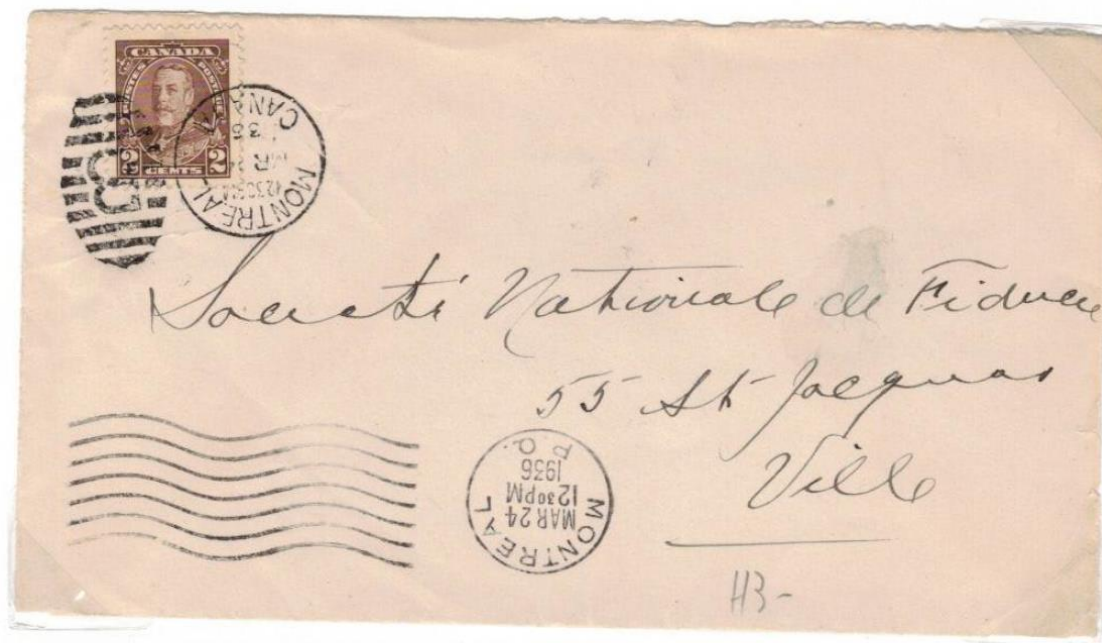 CANADA
POSTES POSTAGE
2 CENTS 2
MONTREAL
CANADA
Société Nationale de Fiducie
55 St Jacques
Ville
MONTREAL
MAR 24
12 30 PM
1936
P.Q.
H3-